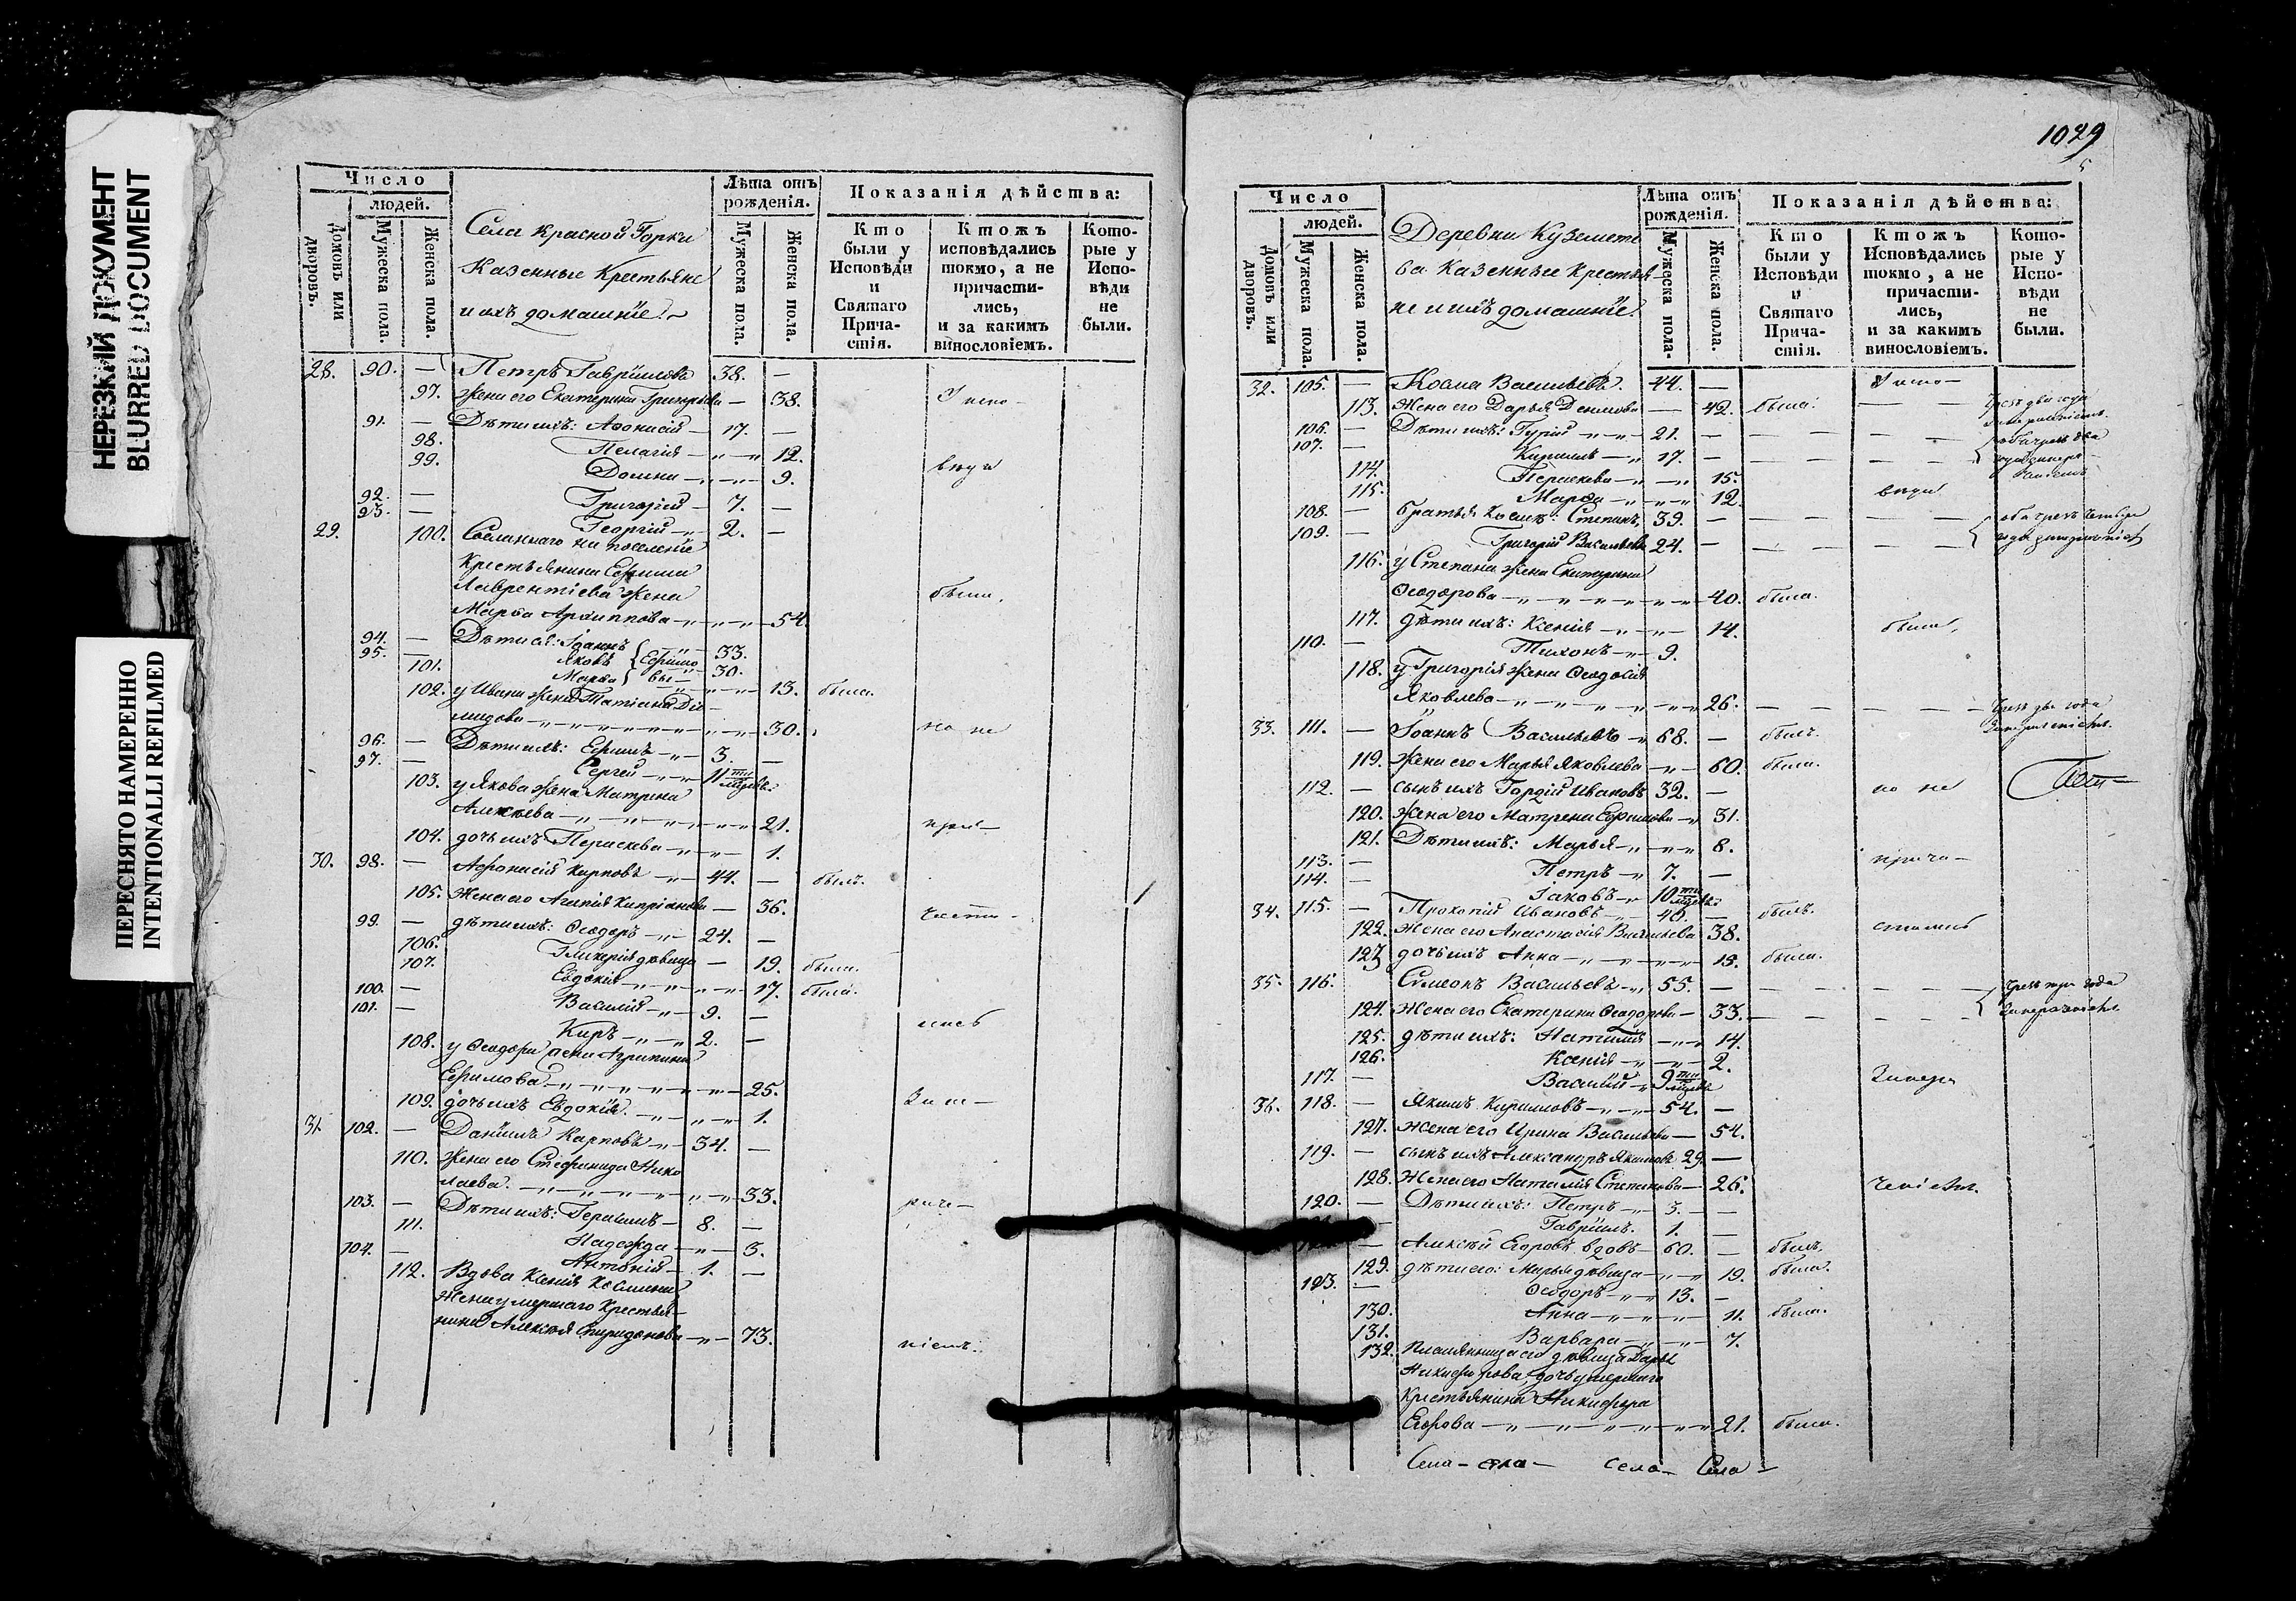 НЕРЕЗКИЙ ДОКУМЕНТ
BLURRED DOCUMENT
ПЕРЕСНЯТО НАМЕРЕННО
INTENTIONALLI REFILMED
Число
людей.
Домовъ или дворовъ.
Мужеска пола.
Женска пола.
Села Красной Горки
Казенные Крестьяне
и ихъ домашніе
Лѣта отъ рожденія.
Мужеска пола.
Женска пола.
Показанія дѣйства:
Кто были у Исповѣди и Святаго Прича- стія.
Ктожъ исповѣдались токмо, а не причасти- лись, и за какимъ винословіемъ.
Кото- рые у Испо- вѣди не были.
28. 90. — Петръ Гавріиловъ 38. —
97. жена его Екатерина Григорьева — 38. У испо-
91. — Дѣти ихъ: Афонасій 17. —
98. Пелагія 12.
99. Домна 9. вѣди
92. — Григорій 7. —
93. — Георгій 2. —
29. 100. Сосланнаго на поселеніе
Крестьянина Ефима
Лаврентіева жена
Марѳа Архиппова 54. были,
94. — Дѣти ея: Іоаннъ 33.
95. — Яковъ Ефимо 30.
101. Марѳа вы 13. была.
102. у Ивана жена Татіана Діо-
мидова 30. но не
96. — Дѣти ихъ: Ефимъ 3. —
97. — Сергей 11ти мѣсяц.
103. у Якова жена Матрена
Алексѣева 21. при-
104. дочь ихъ Параскева 1.
30. 98. — Афонасій Карповъ 44. — былъ.
105. Жена его Агапія Кипріанова — 36.
99. — дѣти ихъ: Ѳеодоръ 24. — части-
106. Гликерія дѣвица — 19. была.
107. Евдокія 17. была.
100. — Василій 9. —
101. — Киръ 2. — лись
108. у Ѳеодора жена Агрипина
Ефимова 25.
109. дочь ихъ Евдокія 1. За не-
31. 102. — Даніилъ Карповъ 34. —
110. жена его Стефанида Нико
лаева. 33.
103. — Дѣти ихъ: Герасимъ 8. — раче-
111. Надежда 3.
104. — Антоній 1. —
112. Вдова Ксенія Космина
жена умершаго Крестья-
нина Алексѣя Спиридонова 73. ніемъ.
1029
Число
людей.
Домовъ или дворовъ.
Мужеска пола
Женска пола.
Деревни Куземете
ва Казенные Крестья
не и ихъ домашніе.
Лѣта отъ рожденія.
Мужеска пола.
Женска пола.
Показанія дѣйства:
Кто были у Исповѣди и Святаго Прича- стія.
Ктожъ Исповѣдались токмо, а не причасти- лись, и за какимъ винословіемъ.
Кото- рые у Испо- вѣди не были.
32. 105. — Косма Васильевъ. 44. — У испо-
113. Жена его Дарья Денисова — 42. была. чрезъ два года
106. — Дѣти ихъ: Гурій 21. —
107. — Кирилъ 17. —
114. Параскева 15.
115. Марѳа 12. вѣди
108. — братья Космы: Степанъ, 39. —
109. — Григорій Васильевы 24. —
116. у Степана жена Екатерина
Ѳеодорова 40. была.
117. Дѣти ихъ: Ксенія 14. были,
110. — Тихонъ 9.
118. у Григорія жена Ѳеодосія
Яковлева 26. чрезъ два года
33. 111. — Іоаннъ Васильевъ 68. — былъ.
119. Жена его Марья Яковлева 60. была.
112. — сынъ ихъ Гордій Ивановъ 32. — но не
120. Жена его Матрена Ефимова 31.
121. Дѣти ихъ: Марья 8.
113. — Петръ 7. — прича-
114. — Іаковъ 10ти мѣсяц.
34. 115. — Прокопій Ивановъ 40. — былъ.
122. Жена его Анастасія Васильева 38. стились
123. дочь ихъ Анна 13. была.
35. 116. Симеонъ Васильевъ 55. — чрезъ три года
124. Жена его Екатерина Ѳеодорова 33.
125. дѣти ихъ: Наталія 14.
126. Ксенія 2.
117. — Василій 9ти мѣсяц. За нера-
36. 118. — Якимъ Кириловъ 54. —
127. Жена его Ирина Васильева — 54.
119. — сынъ ихъ Александръ Якимовъ 29. —
128. Жена его Наталія Степанова — 26. ченіемъ.
120. — Дѣти ихъ: Петръ 3. —
— Гавріилъ. 1. —
— Алексѣй Егоровъ вдовъ 60. — былъ.
129. дѣти его: Марья дѣвица 19. была.
123. — Ѳеодоръ 13. —
130. Анна 11. была.
131. Варвара 7.
132. Племянница его дѣвица Дарья
Никифорова, дочь умершаго
Крестьянина Никифора
Егорова 21. была.
Села — Села —